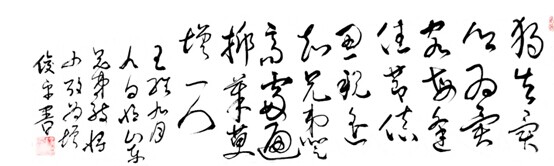 獨在異
鄉為異
客每逢
佳節倍
思親遙
知兄弟登
高處遍
插茱萸
增一人
王維九月
九日憶山东
兄弟詩將
少改為增
俊平書